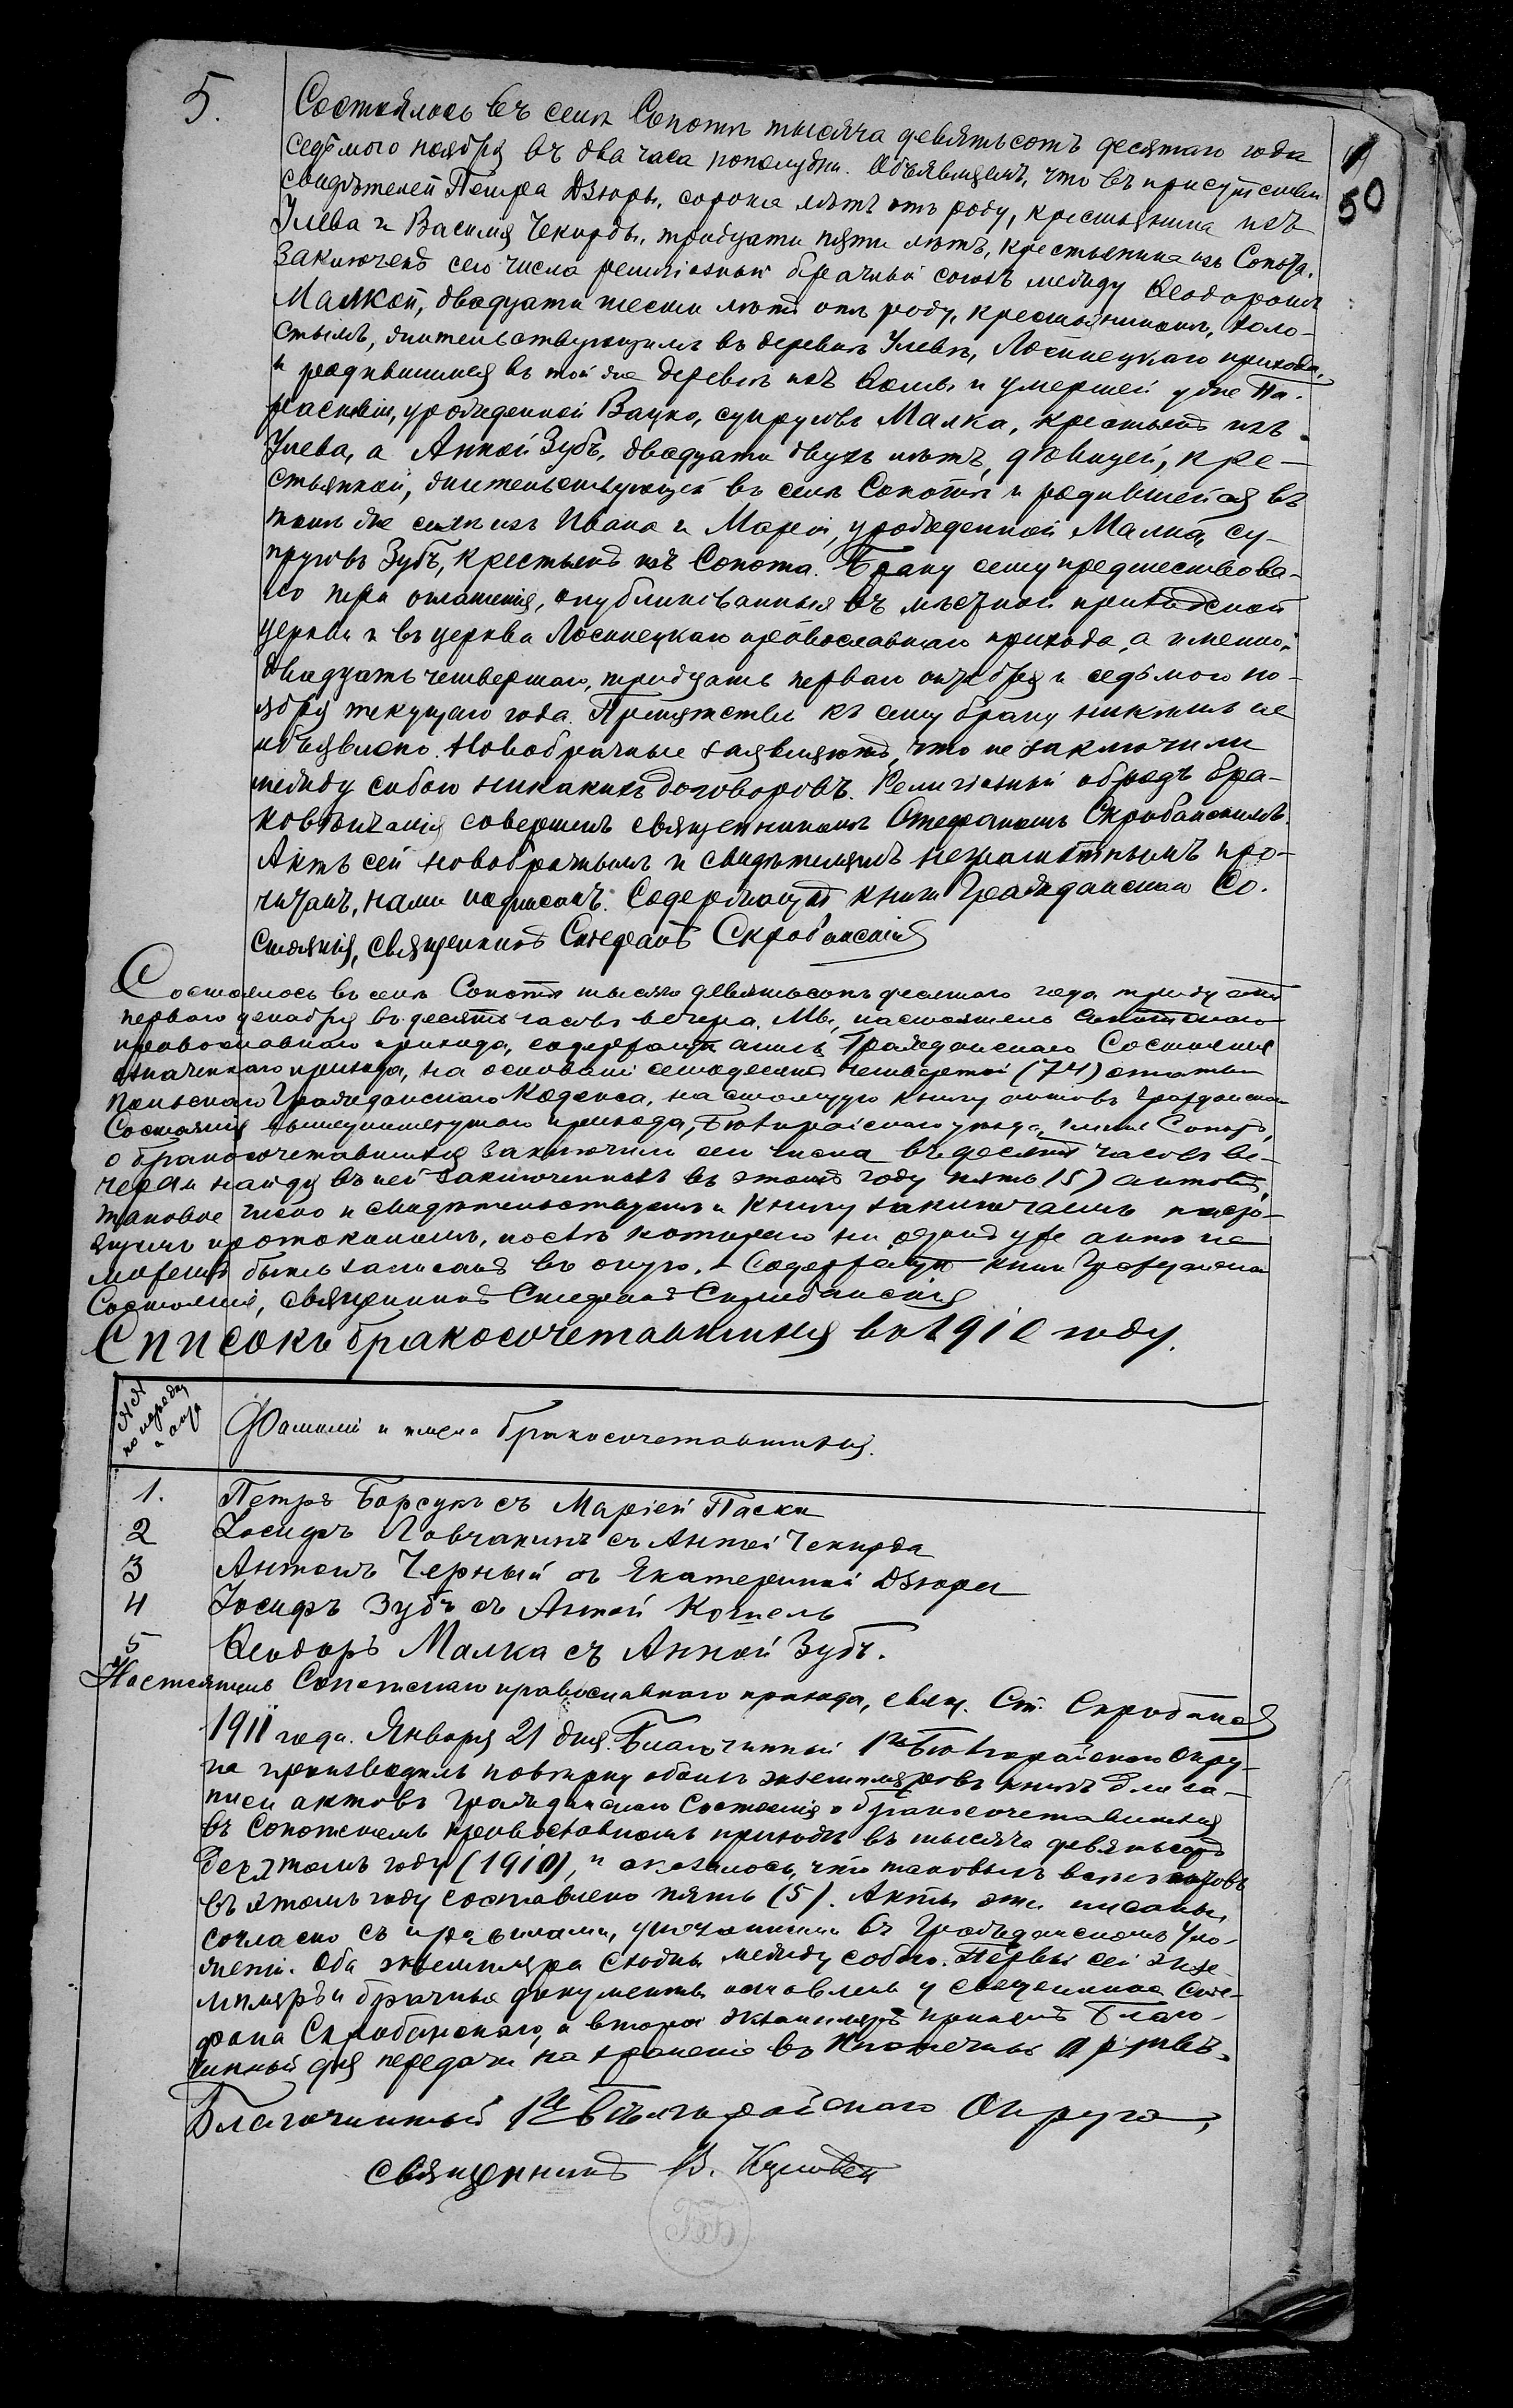 5.
50
Состоялось въ селѣ Сопотѣ тысяча девятьсотъ десятаго года
седьмого ноября въ два часа пополудни. Объявляемъ, что въ присутствіи
свидѣтелей Петра Дзюры, сорока лѣтъ отъ роду, крестьянина изъ
Улева и Василія Чекирды, тридцати пяти лѣтъ, крестьянина изъ Сопота,
заключенъ сего числа религіозный брачный союзъ между Ѳеодоромъ
Малкой, двадцати шести лѣтъ отъ роду, крестьяниномъ, холо-
стымъ, жительствующимъ въ деревнѣ Улевѣ, Лосинецкаго прихода,
и родившимся въ той же деревнѣ изъ Ѳомы и умершей уже Па-
раскевіи, урожденной Вацко, супруговъ Малка, крестьянъ изъ
Улева, а Анной Зубъ, двадцати двухъ лѣтъ, дѣвицей, кре-
стьянкой, жительствующей въ селѣ Сопотѣ и родившейся въ
томъ же селѣ изъ Ивана и Маріи, урожденной Малка, су-
пруговъ Зубъ, крестьянъ изъ Сопота. Браку сему предшествова-
ло три оглашенія, опубликованныя въ мѣстной приходской
церкви и въ церкви Лосинецкаго православнаго прихода, а именно:
двадцать четвертаго, тридцать перваго октября и седьмого но-
ября текущаго года. Препятствія къ сему браку никѣмъ не
объявлено. Новобрачные заявляютъ, что не заключили
между собою никакихъ договоровъ. Религіозный обрядъ бра-
ковѣнчанія совершенъ священникомъ Стефаномъ Скробанскимъ.
Актъ сей новобрачнымъ и свидѣтелямъ неграмотнымъ про-
читанъ, нами подписанъ. Содержащій книги Гражданскаго Со-
стоянія, священникъ Стефанъ Скробанскій
Состоялось въ селѣ Сопотѣ тысяча девятьсотъ десятаго года тридцать
перваго декабря въ десять часовъ вечера. Мы, настоятель Сопотскаго
православнаго прихода, содержащій акты Гражданскаго Состоянія
означеннаго прихода, на основаніи семьдесятъ четвертой (74) статьи
Польскаго Гражданскаго Кодекса, настоящую книгу актовъ Гражданскаго
Состоянія вышеупомянутаго прихода, Бѣлгорайскаго уѣзда, гмины Сопотъ,
о бракосочетавшихся заключили сего числа въ десять часовъ ве-
чера и найдя въ ней заключенныхъ въ этомъ году пять (5) актовъ,
таковое число и свидѣтельствуемъ и книгу заключаемъ насто-
ящимъ протоколомъ, послѣ котораго ни одинъ уже актъ не
можетъ быть записанъ въ оную. Содержащій книги Гражданскаго
Состоянія, священникъ Стефанъ Скробанскій
Списокъ бракосочетавшихся въ 1910 году.
№№
по порядку
и акта
Фамиліи и имена бракосочетавшихся.
1. Петръ Борсукъ съ Маріей Паска
2 Іосифъ Ловчакинъ съ Анной Чекирда
3 Антонъ Черный съ Екатериной Дзюра
4 Іосифъ Зубъ съ Анной Котель
5 Ѳеодоръ Малка съ Анной Зубъ.
Настоятель Сопотскаго православнаго прихода, свящ. Ст. Скробанскій
1911 года. Января 21 дня. Благочинный 1го Бѣлгорайскаго Окру-
га производилъ повѣрку обоихъ экземпляровъ книгъ для за-
писи актовъ Гражданскаго Состоянія о бракосочетавшихся
въ Сопотскомъ православномъ приходѣ въ тысяча девятьсотъ
десятомъ году (1910), и оказалось, что таковыхъ всѣхъ актовъ
въ этомъ году составлено пять (5). Акты эти писаны
согласно съ правилами, указанными въ Гражданскомъ Уло-
женіи. Оба экземпляра сходны между собою. Первый сей экзе-
мпляръ и брачные документы оставлены у священника Сте-
фана Скробанскаго, а второй экземпляръ принялъ Благо-
чинный для передачи на храненіе въ Ипотечный архивъ.
Благочинный 1го Бѣлгорайскаго Округа,
священникъ В.